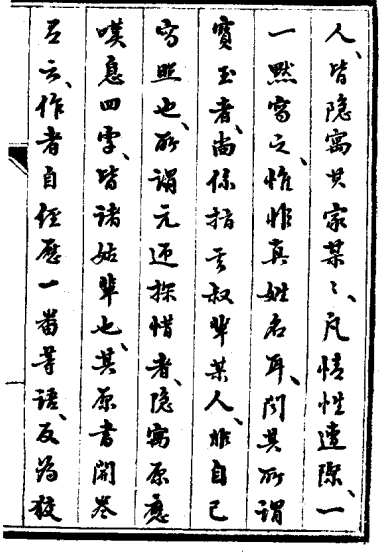 人、皆隱寓其家某々、凡情性遭際、一
一默寫之、惟非真姓名耳、聞其所謂
寶玉者、尚係指其叔輩某人、非自己
寫照也、所謂元迎探惜者、隱寓原應
嘆息四字、皆諸姑輩也、其原書開卷
有云、作者自經歷一番等語、反為狡